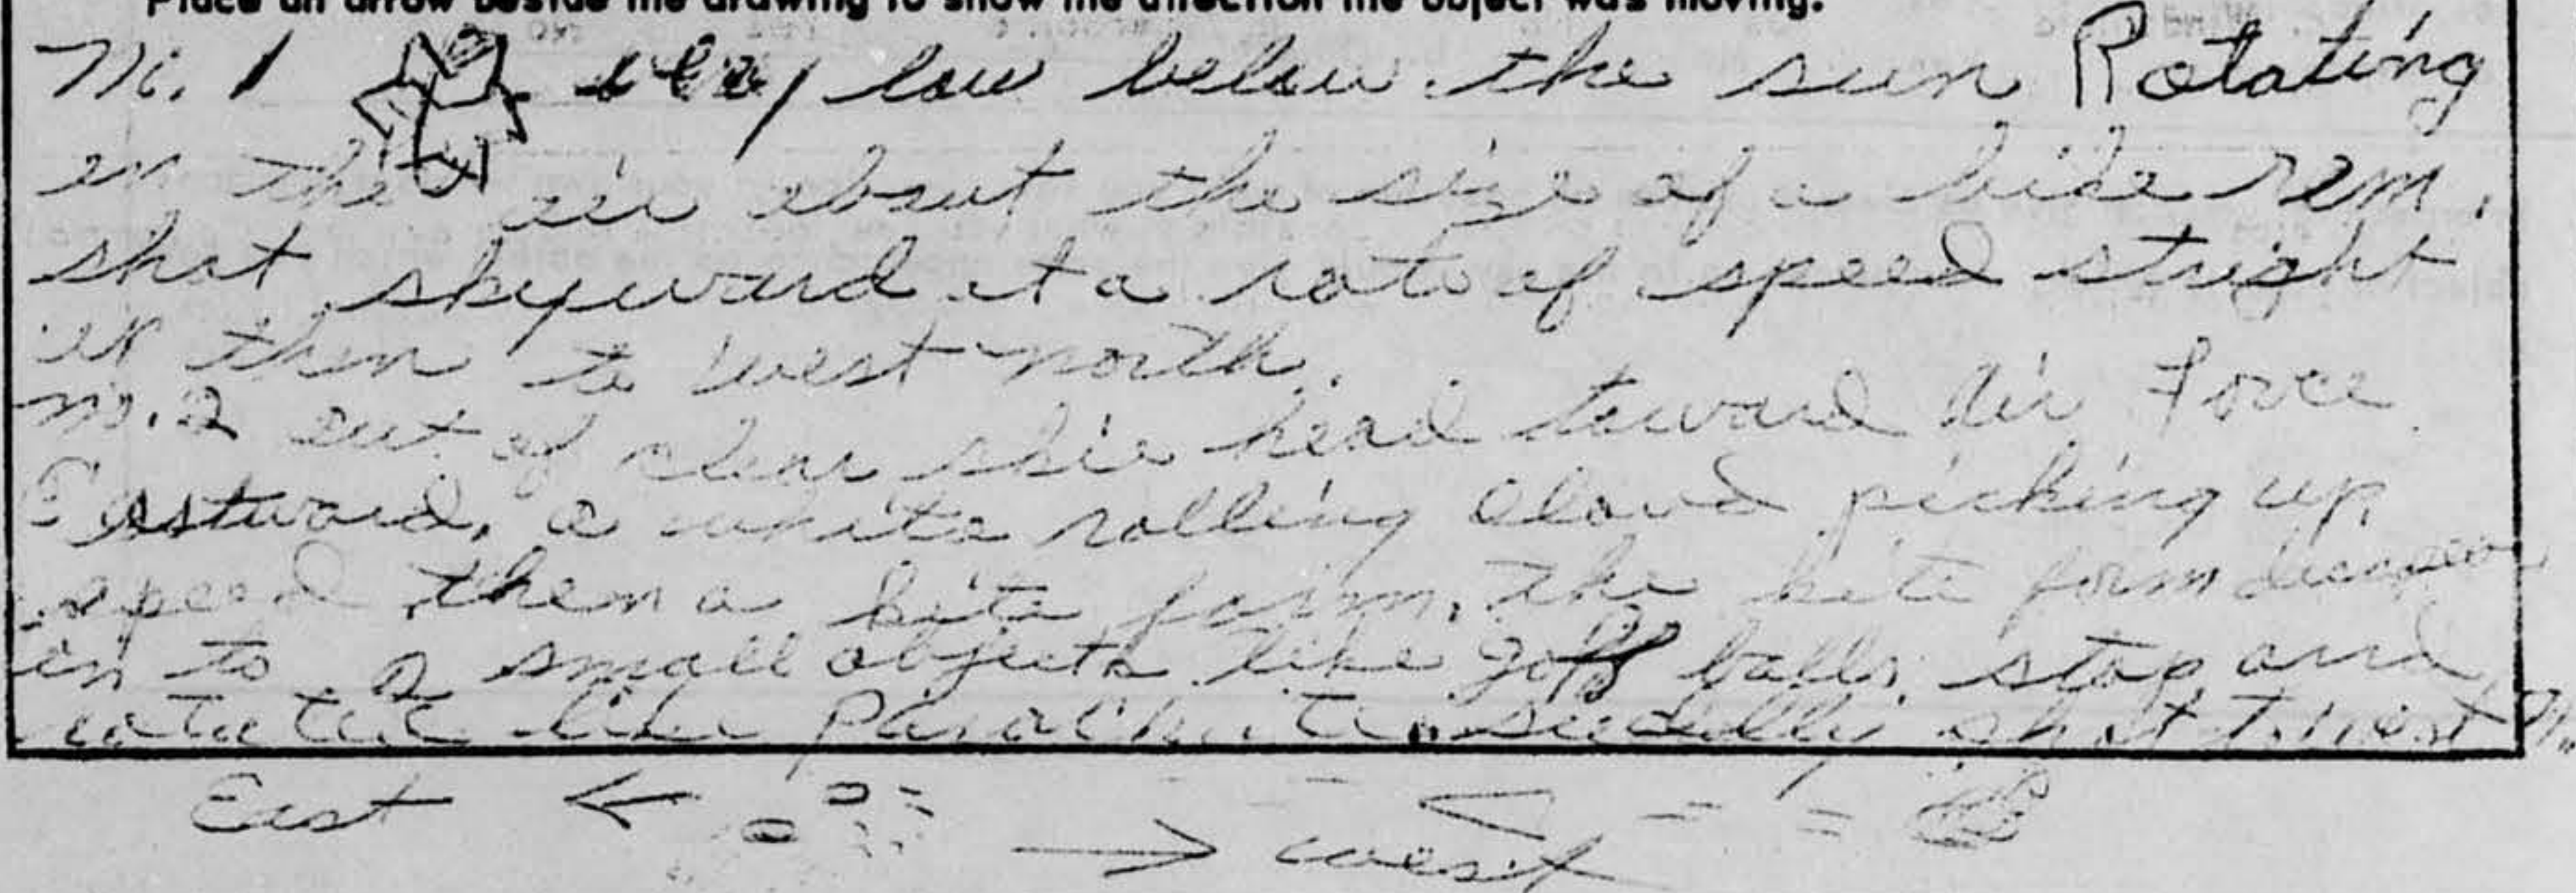 Place an arrow beside the drawing to show the direction the object was moving.
No. 1 very low below the sun Rotating
in the air about the size of a bike rem.
shot skyward at a rate of speed stright
up then to west north.
no. 2 out of clear skie head toward Air Force
Eastward. a white rolling cloud picking up
speed then a kite form. The kite form
in to 2 small objects like golf balls. stop and
rotated like Parachute suddlly shot to West
East
west